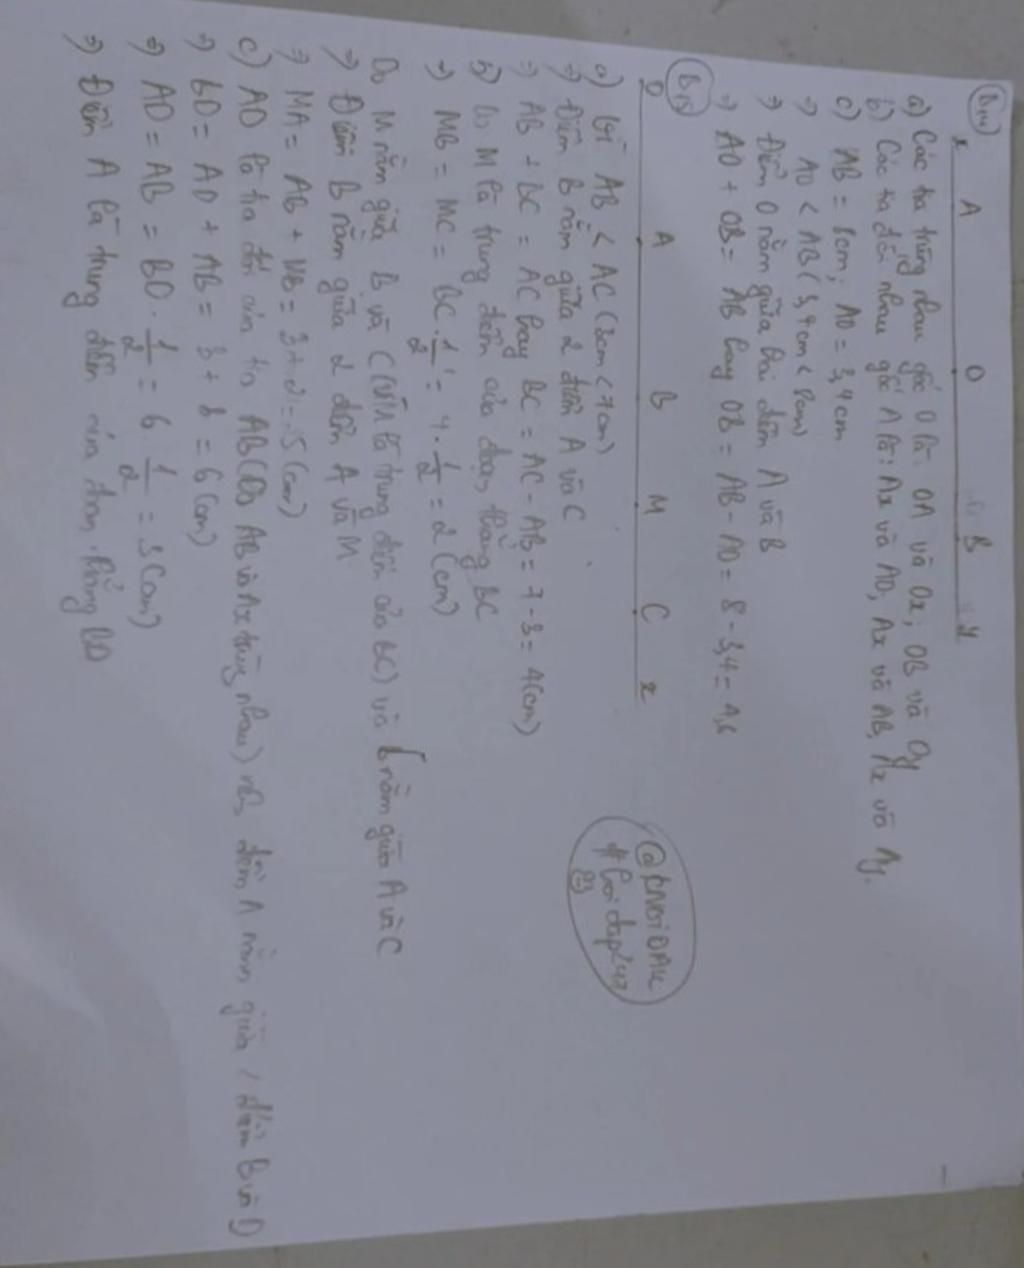 B14
x A O B y
a) Các tia trùng nhau gốc O là: OA và Ox; OB và Oy
b) Các tia đối nhau gốc A là: Ax và AO, Ax và AB, Ax và Ay.
c) AB = 8cm; AO = 3,4cm
⇒ AO < AB (3,4cm < 8cm)
⇒ Điểm O nằm giữa hai điểm A và B
⇒ AO + OB = AB hay OB = AB - AO = 8 - 3,4 = 4,6
B15
D A B M C x
a) Vì AB < AC (3cm < 7cm)
⇒ Điểm B nằm giữa 2 điểm A và C
⇒ AB + BC = AC hay BC = AC - AB = 7 - 3 = 4(cm)
b) Do M là trung điểm của đoạn thẳng BC
⇒ MB = MC = BC . 1/2 = 4 . 1/2 = 2 (cm)
Do M nằm giữa B và C (vì M là trung điểm của BC) và B nằm giữa A và C
⇒ Điểm B nằm giữa 2 điểm A và M
⇒ MA = AB + MB = 3 + 2 = 5 (cm)
c) AD là tia đối của tia AB (do AB và Ax trùng nhau) nên điểm A nằm giữa 2 điểm B và D
⇒ BD = AD + AB = 3 + 3 = 6 (cm)
⇒ AD = AB = BD . 1/2 = 6 . 1/2 = 3 (cm)
⇒ Điểm A là trung điểm của đoạn thẳng BD
#hoidap247